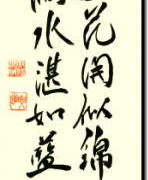 花開似錦
水湛如藍